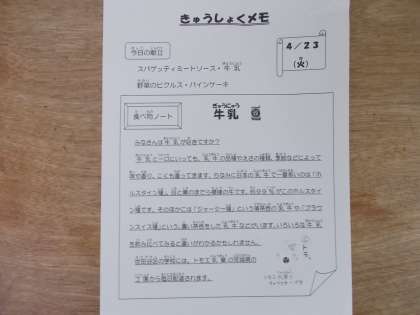 きゅうしょくメモ
4/23
(火)
今日の献立
スパゲッティミートソース・牛乳
野菜のピクルス・パインケーキ
食べ物ノート
ぎゅうにゅう
牛乳
みなさんは牛乳が好きですか?
牛乳と一口にいっても、乳牛の品種やえさの種類、季節などによって
味や香り、こくも違ってきます。ちなみに日本の乳牛で一番多いのは「ホ
ルスタイン種」。白と黒のまだら模様の牛です。約99%がこのホルスタ
イン種です。そのほかには「ジャージー種」という薄茶色の乳牛や「ブラウ
ンスイス種」という、濃い茶色をした乳牛などがいます。いろいろな牛乳
を飲み比べてみると違いがわかるかもしれません。
世田谷区の学校には、トモエ乳業の茨城県の
工場から毎日配達されます。